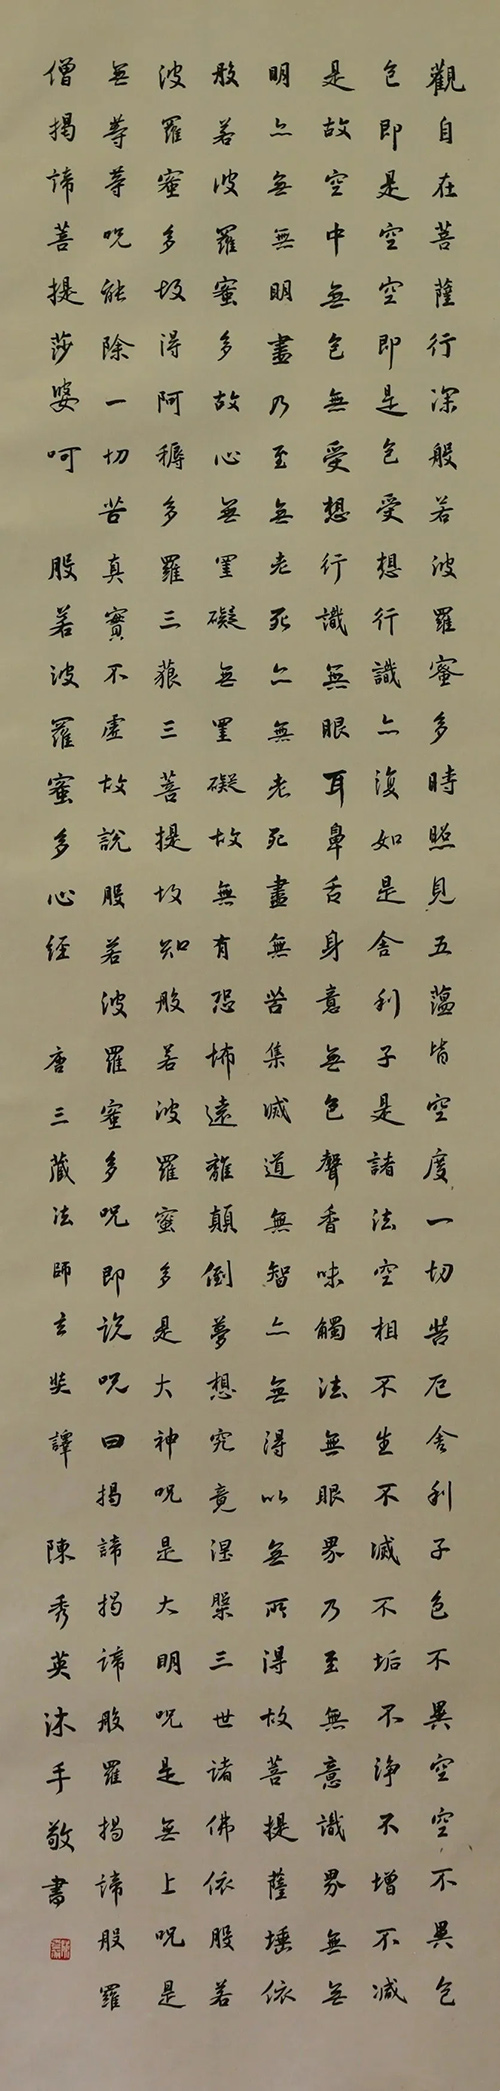 觀自在菩薩行深般若波羅蜜多時照見五蘊皆空度一切苦厄舍利子色不異空空不異色
色即是空空即是色受想行識亦復如是舍利子是諸法空相不生不滅不垢不淨不增不減
是故空中無色無受想行識無眼耳鼻舌身意無色聲香味觸法無眼界乃至無意識界無無
明亦無無明盡乃至無老死亦無老死盡無苦集滅道無智亦無得以無所得故菩提薩埵依
般若波羅蜜多故心無罣礙無罣礙故無有恐怖遠離顛倒夢想究竟涅槃三世諸佛依般若
波羅蜜多故得阿耨多羅三藐三菩提故知般若波羅蜜多是大神呪是大明呪是無上呪是
無等等呪能除一切苦真實不虛故說般若波羅蜜多呪即說呪曰揭諦揭諦般羅揭諦般羅
僧揭諦菩提莎婆呵 般若波羅蜜多心經 唐三藏法師玄奘譯 陳秀英沐手敬書